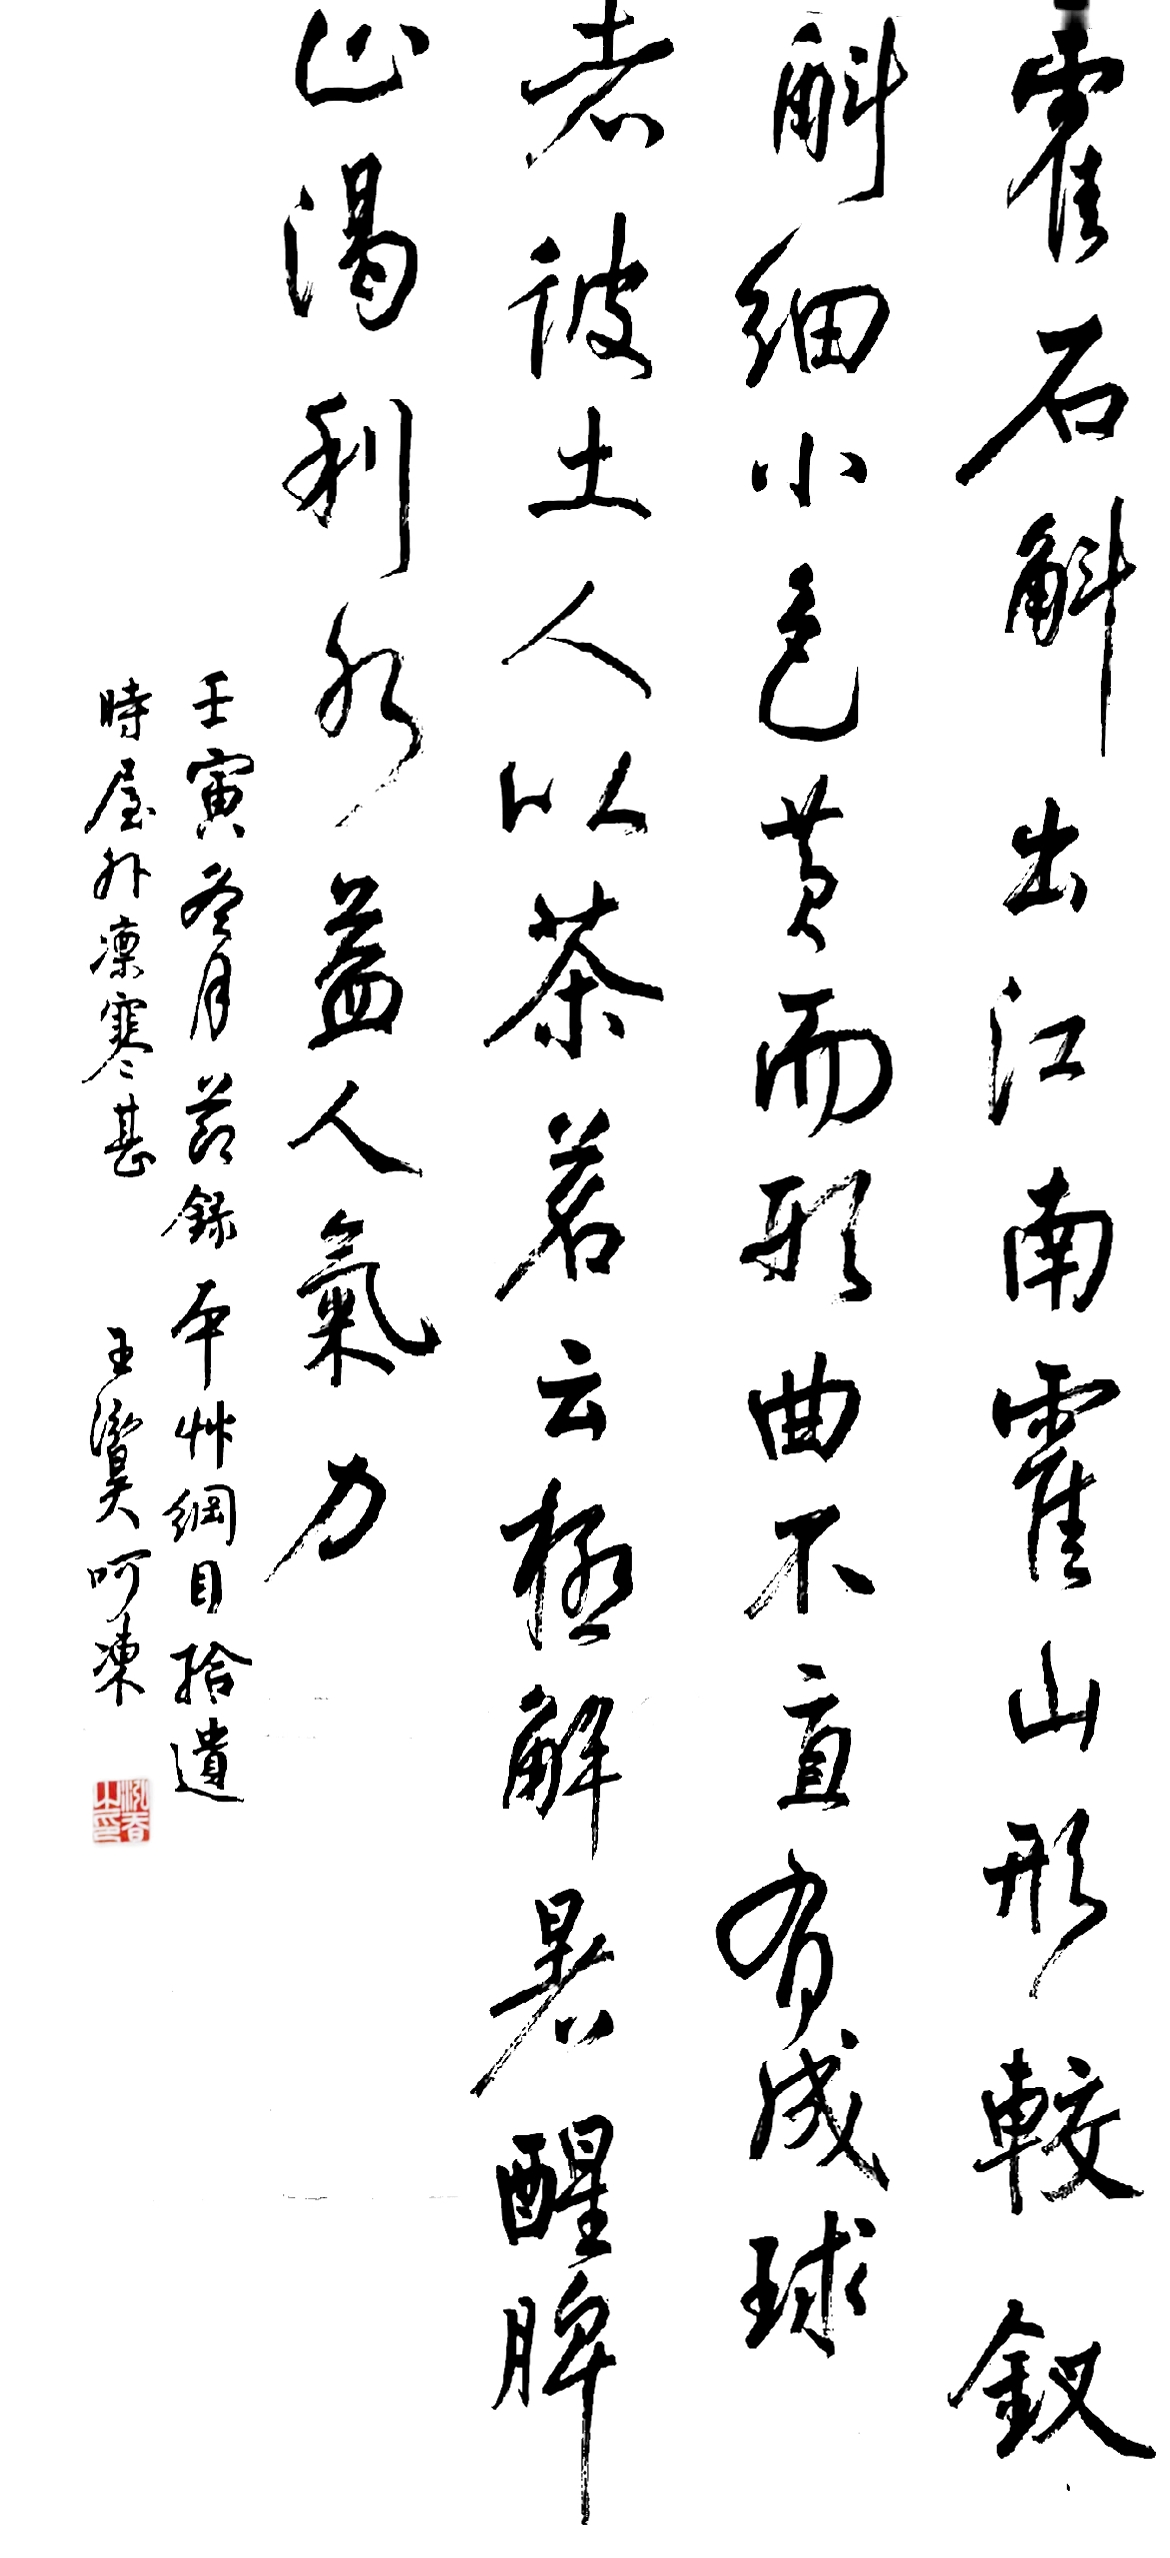 霍石斛出江南霍山形較釵
斛細小色黄而形曲不直有成球
者彼土人以茶茗云極解暑醒脾
止渴利水益人氣力
壬寅冬月節錄本艸綱目拾遺
時屋外凜寒甚 王 呵凍
泓春之印